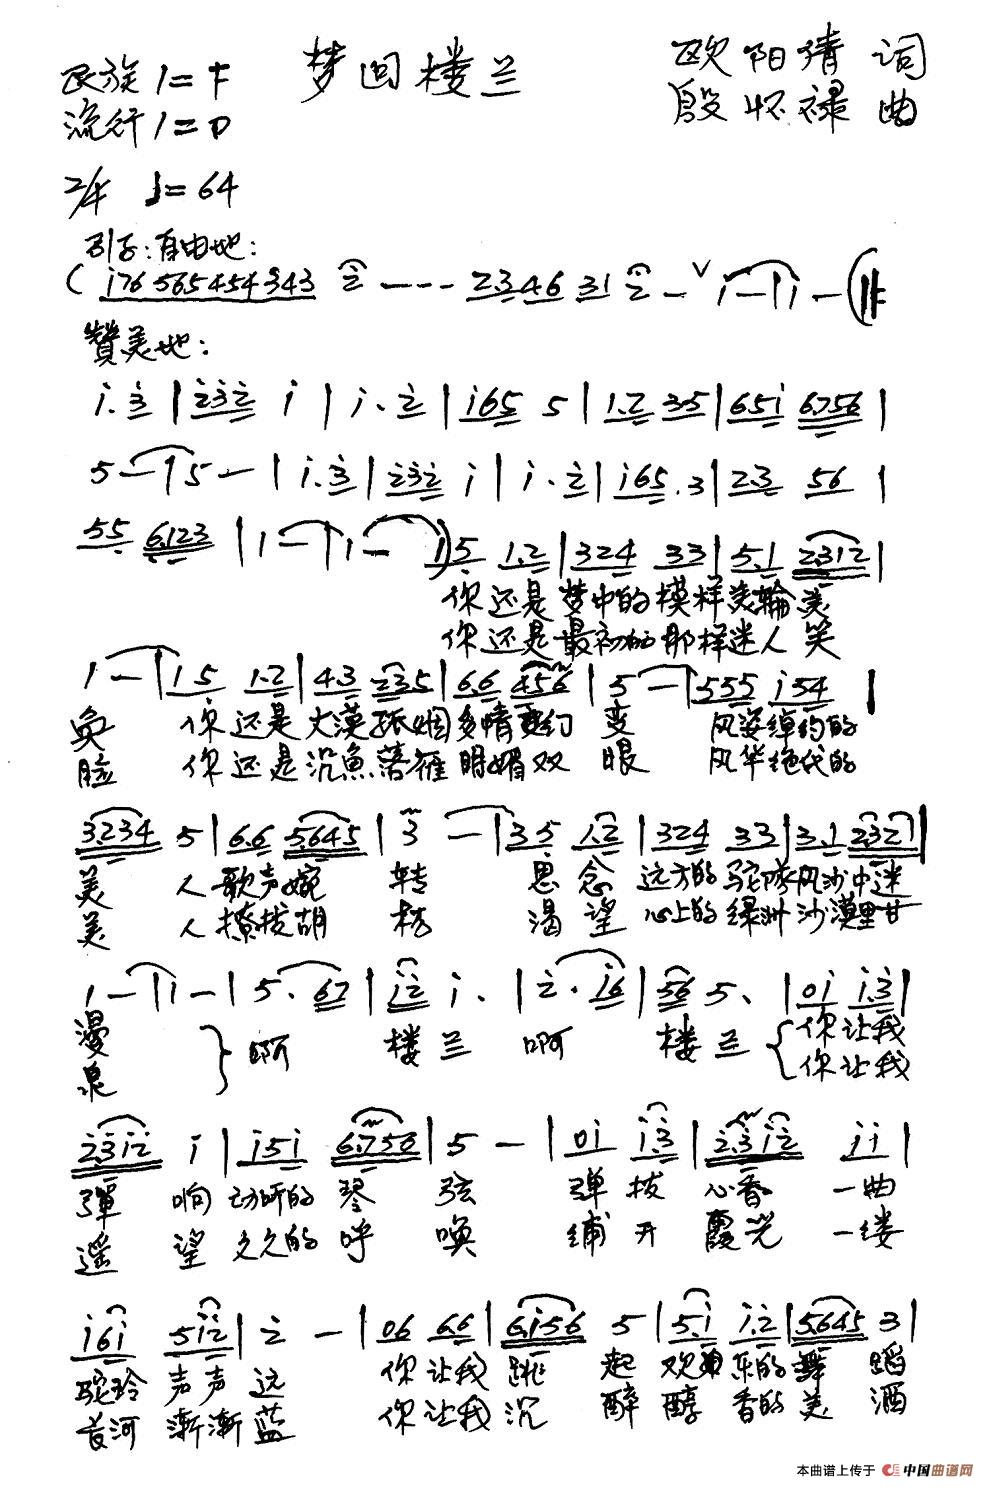 民族1=F 梦回楼兰 欧阳猜 词
流行1=D 殷怀禄 曲
2/4 ♩=64
引子:自由地:
( i76 565 454 343 2 - - - 23 46 31 2 - ∨ i - | i - )
赞美地:
i. 3 | 232 i | i . 2 | i65 5 | 1.2 3.5 | 65i 6756 |
5 - | 5 - | i.3 | 232 i | i . 2 | i65 .3 | 2.3 56 |
55 6123 | 1 - | 1 - | 1 5 1.2 | 324 33 | 5.1 2312 |
你还是梦中的模样美轮美
你还是最初的那样迷人笑
1 - | 1 5 1.2 | 4.3 235 | 6.6 456 | 5 - | 555 i54 |
奂 你还是大漠孤烟多情 约变 风姿绰约的
脸 你还是沉鱼落雁明媚双眼 风华绝代的
3234 5 | 6.6 5645 | 3 - | 3.5 1.2 | 324 33 | 3.1 232 |
美人歌声婉转 思念远方的驼队风沙中迷
美人撩拨胡 渴望心上的绿洲沙漠里甘
1 - | i - | 5 . 67 | i2 i . | 2 . i6 | 56 5 . | 0i i.3 |
漫 啊 楼兰 啊 楼兰 你让我
泉 你让我
23i2 i | i5i 6.756 | 5 - | 0i i.3 | 2.3i2 ii |
弹响动听的琴弦 弹拨心香一曲
遥望久久的呼唤 铺开霞光一缕
i6i 5i2 | 2 - | 06 6.6 | 6i56 5 | 5.i i.2 | 5645 3 |
驼铃声声远 你让我跳起欢 乐的舞蹈
长河渐渐蓝 你让我沉醉醇香的美酒
本曲谱上传于 中国曲谱网